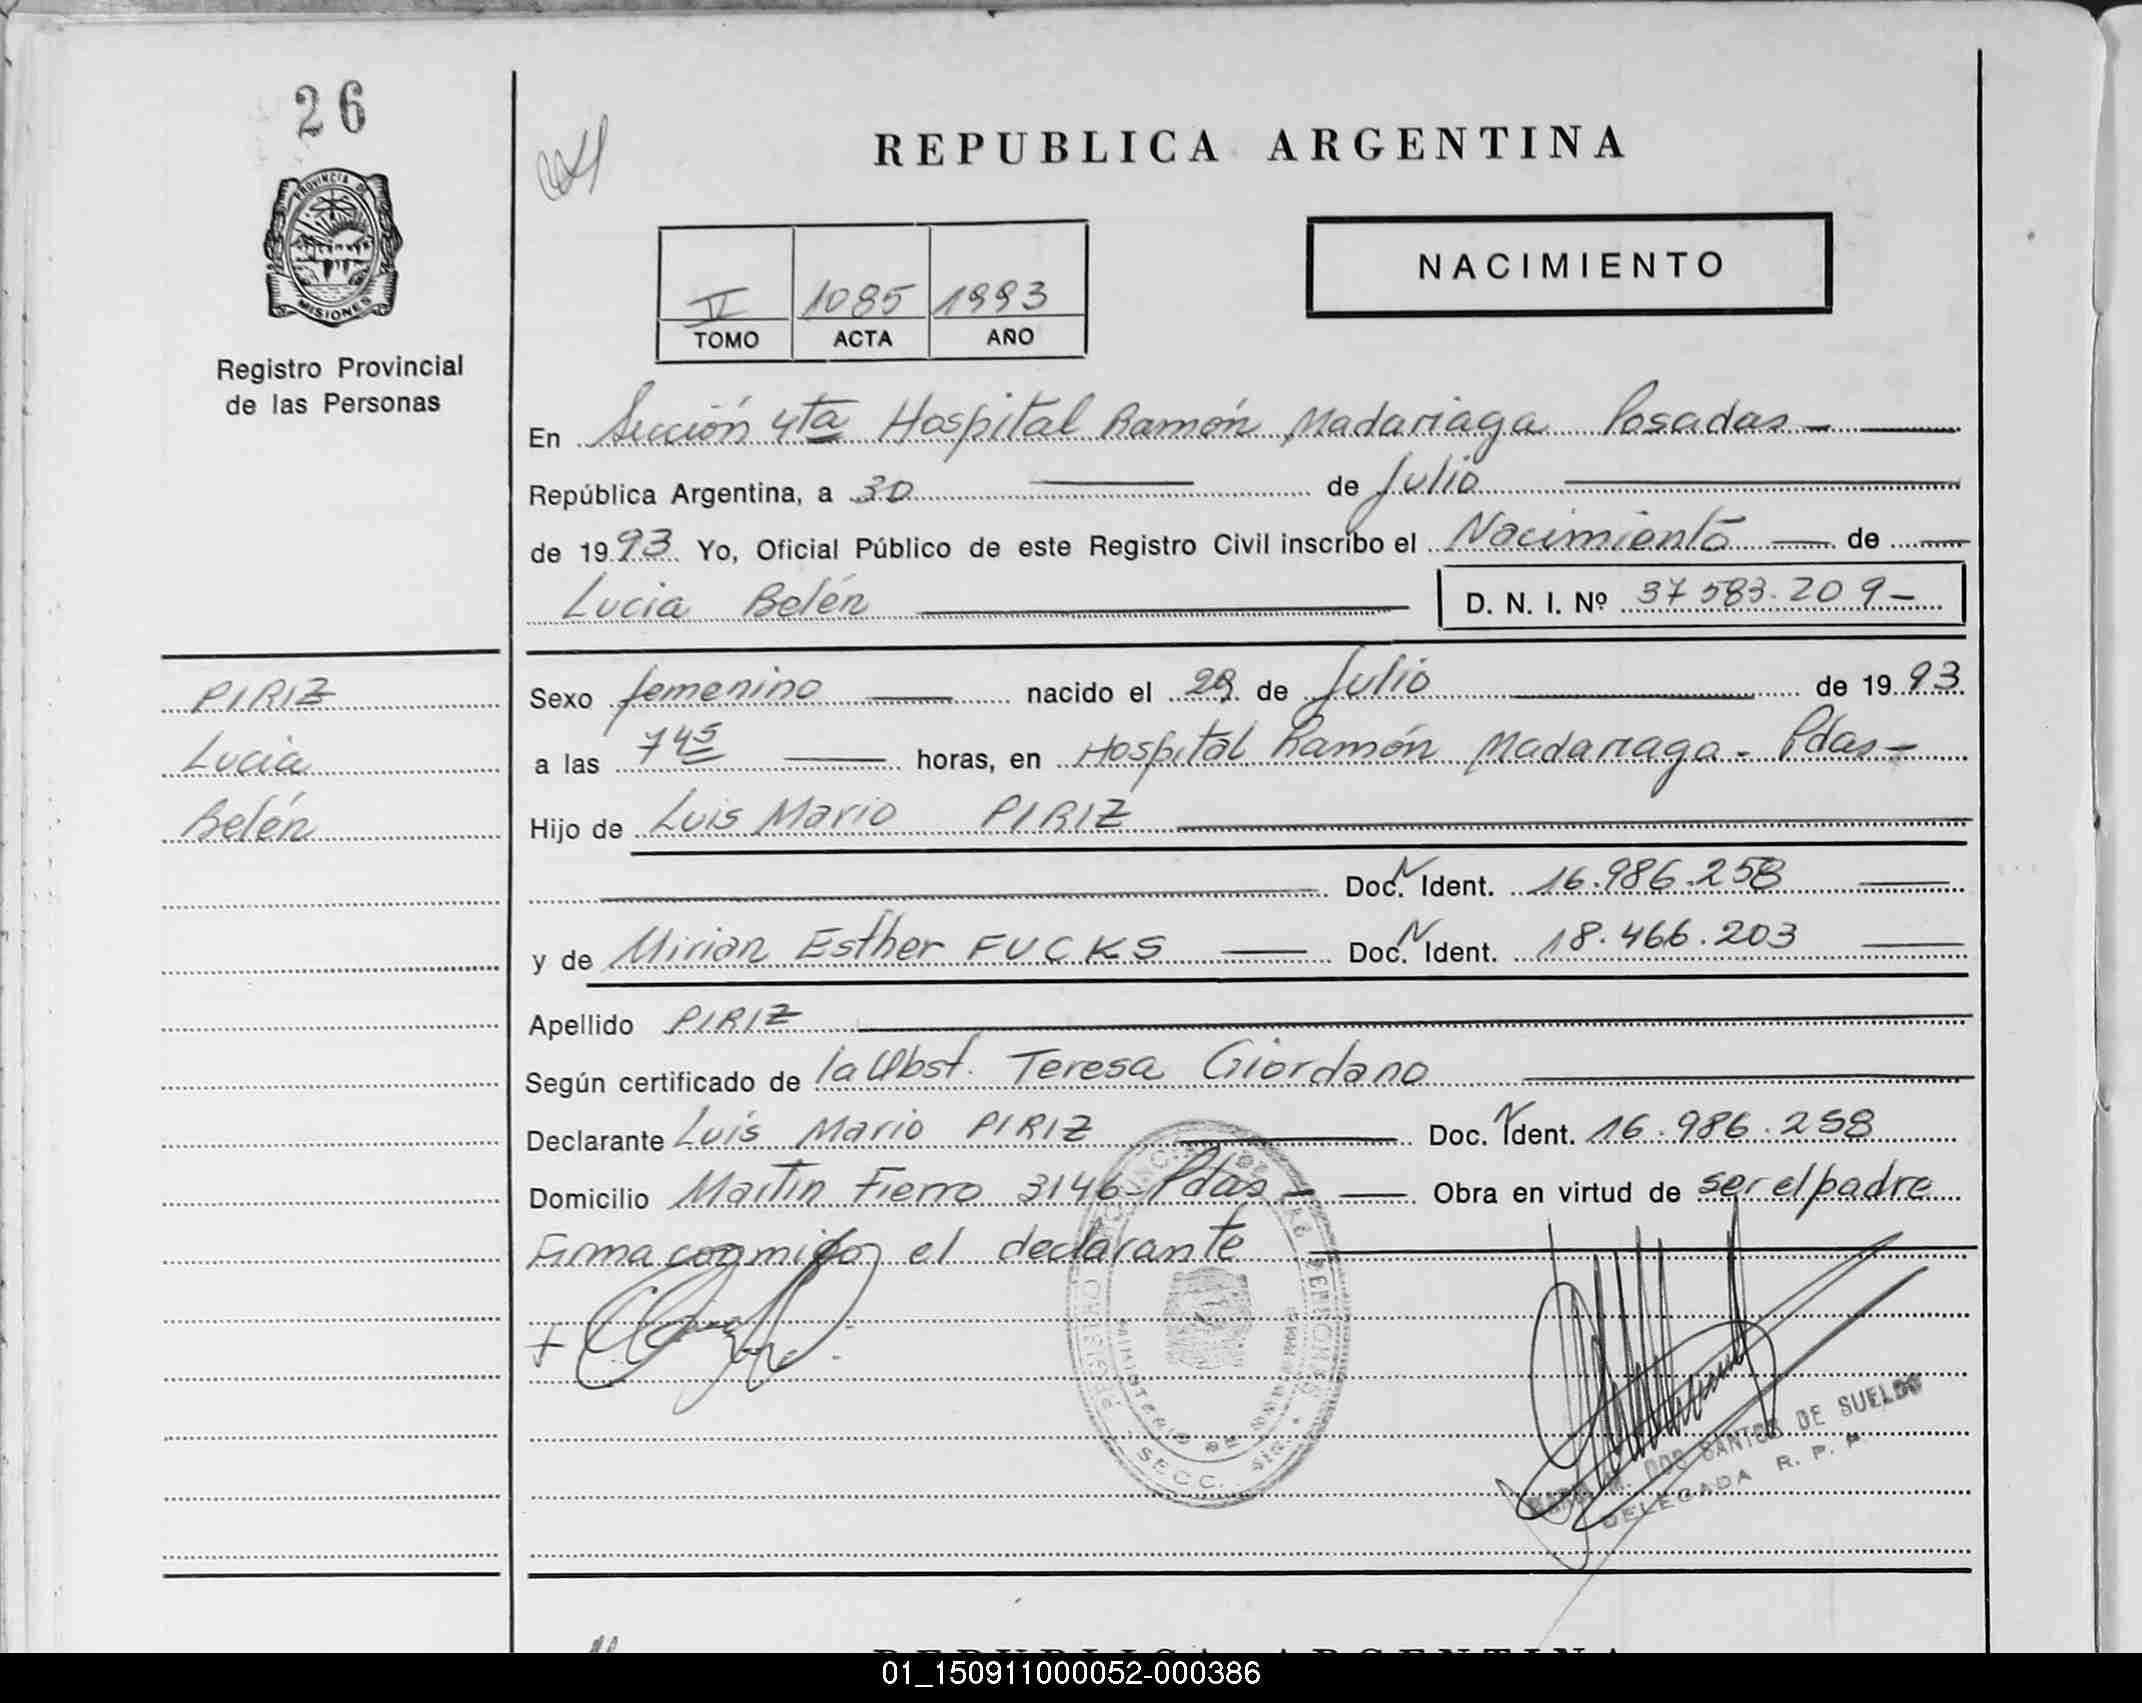 26
PROVINCIA DE
MISIONES
Registro Provincial
de las Personas
PIRIZ
Lucia
Belén
REPUBLICA ARGENTINA
NACIMIENTO
V 1085 1993
TOMO ACTA AÑO
En Sección 4ta Hospital Ramón Madariaga Posadas -
República Argentina, a 30 de Julio
de 1993 Yo, Oficial Público de este Registro Civil inscribo el Nacimiento de
Lucia Belén D. N. I. Nº 37 583.209-
Sexo femenino nacido el 29 de Julio de 1993
a las 7 45 horas, en Hospital Ramón Madariaga - Pdas-
Hijo de Luis Mario PIRIZ
Doc. N Ident. 16.986.258
y de Mirian Esther FUCKS Doc. N Ident. 18.466.203
Apellido PIRIZ
Según certificado de la Obst. Teresa Giordano
Declarante Luis Mario PIRIZ Doc. N Ident. 16.986.258
Domicilio Martin Fierro 3146- Pdas - Obra en virtud de ser el padre
Firma conmigo el declarante
SECC.
DOS SANTOS DE SUELDO
DELEGADA R. P. P.
REPUBLICA ARGENTINA
01_150911000052-000386